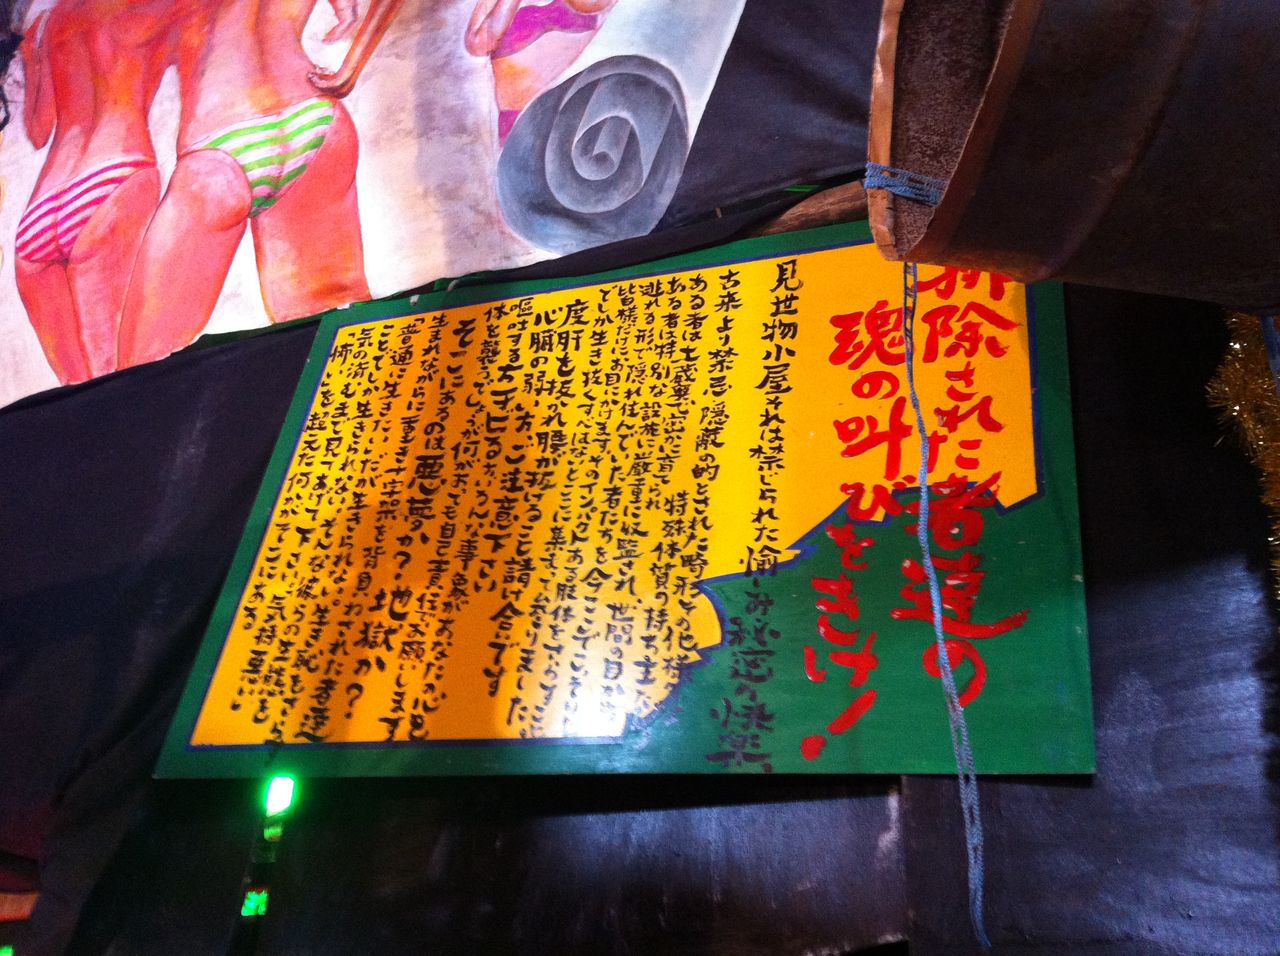 排除された者達の
魂の叫びをきけ!
見世物小屋それは禁じられた愉しみ秘密の快楽、
古来より禁忌、隠蔽の的とされた畸形その他様々
ある者は土蔵裏で密かに育てられ
ある者は特別な設施に厳重に収監され、世間の目から
逃れる形で隠れ住んでいた者たちを今ここでこっそり
皆様だけにお目にかけます。
度肝を抜かれ腰が抜けること請け合いです
心臓の弱い方、ご注意下さい
嘔吐する方チビる方いろんな事象があなたの心と
体を襲うでしょうが何がおても自己責任でお願いします
そこにあるのは悪夢か?地獄か?
生まれながらに重き十字架を背負わされた者達
「普通に生きたい」だが生きられない生き恥をさらす
ことでしか生きられないそんな彼らの生き様をどうか
気の済むまで見てあげて下さい。
「怖い」を超えた何かがそこにはある